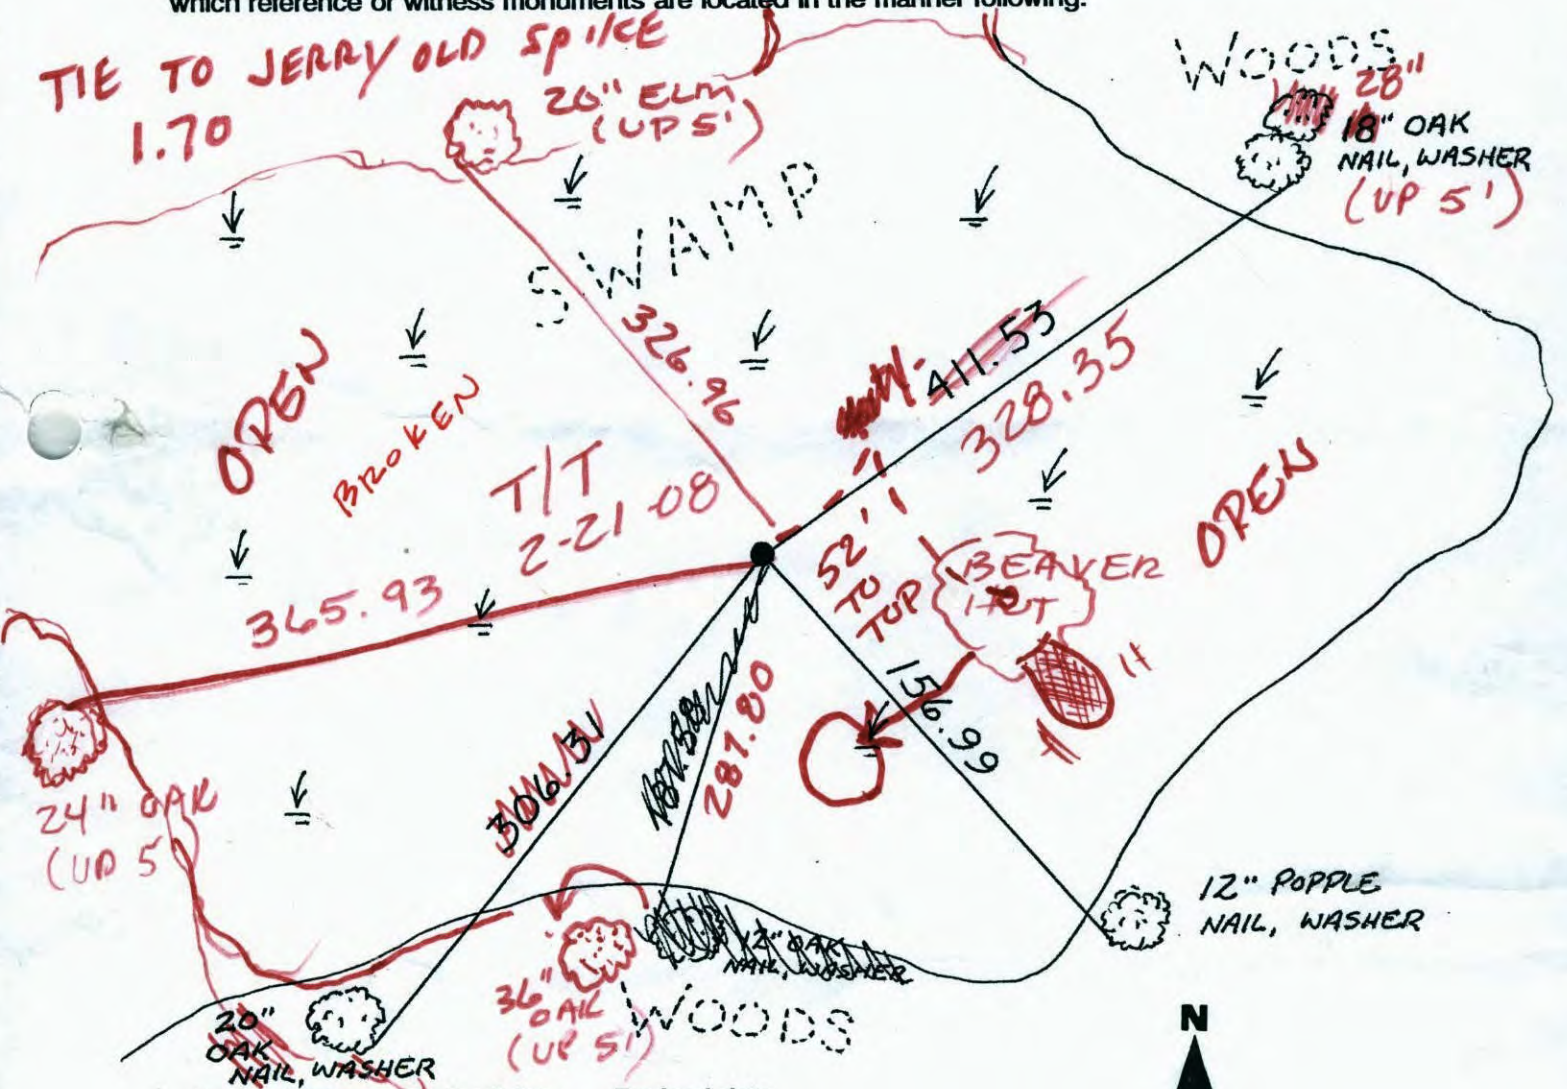 which reference or witness monuments are located in the manner following:
TIE TO JERRY OLD SPIKE
1.70
20" ELM
(UP 5')
WOODS
28"
18" OAK
NAIL, WASHER
(UP 5')
SWAMP
326.96
411.53
328.35
OPEN
BROKEN
T/T
2-21-08
OPEN
52'
TO
TOP
BEAVER
HUT
365.93
156.99
306.31
287.80
24" OAK
(UP 5
12" POPPLE
NAIL, WASHER
12" OAK
NAIL, WASHER
36"
OAK
(UP 5')
WOODS
20"
OAK
NAIL, WASHER
N